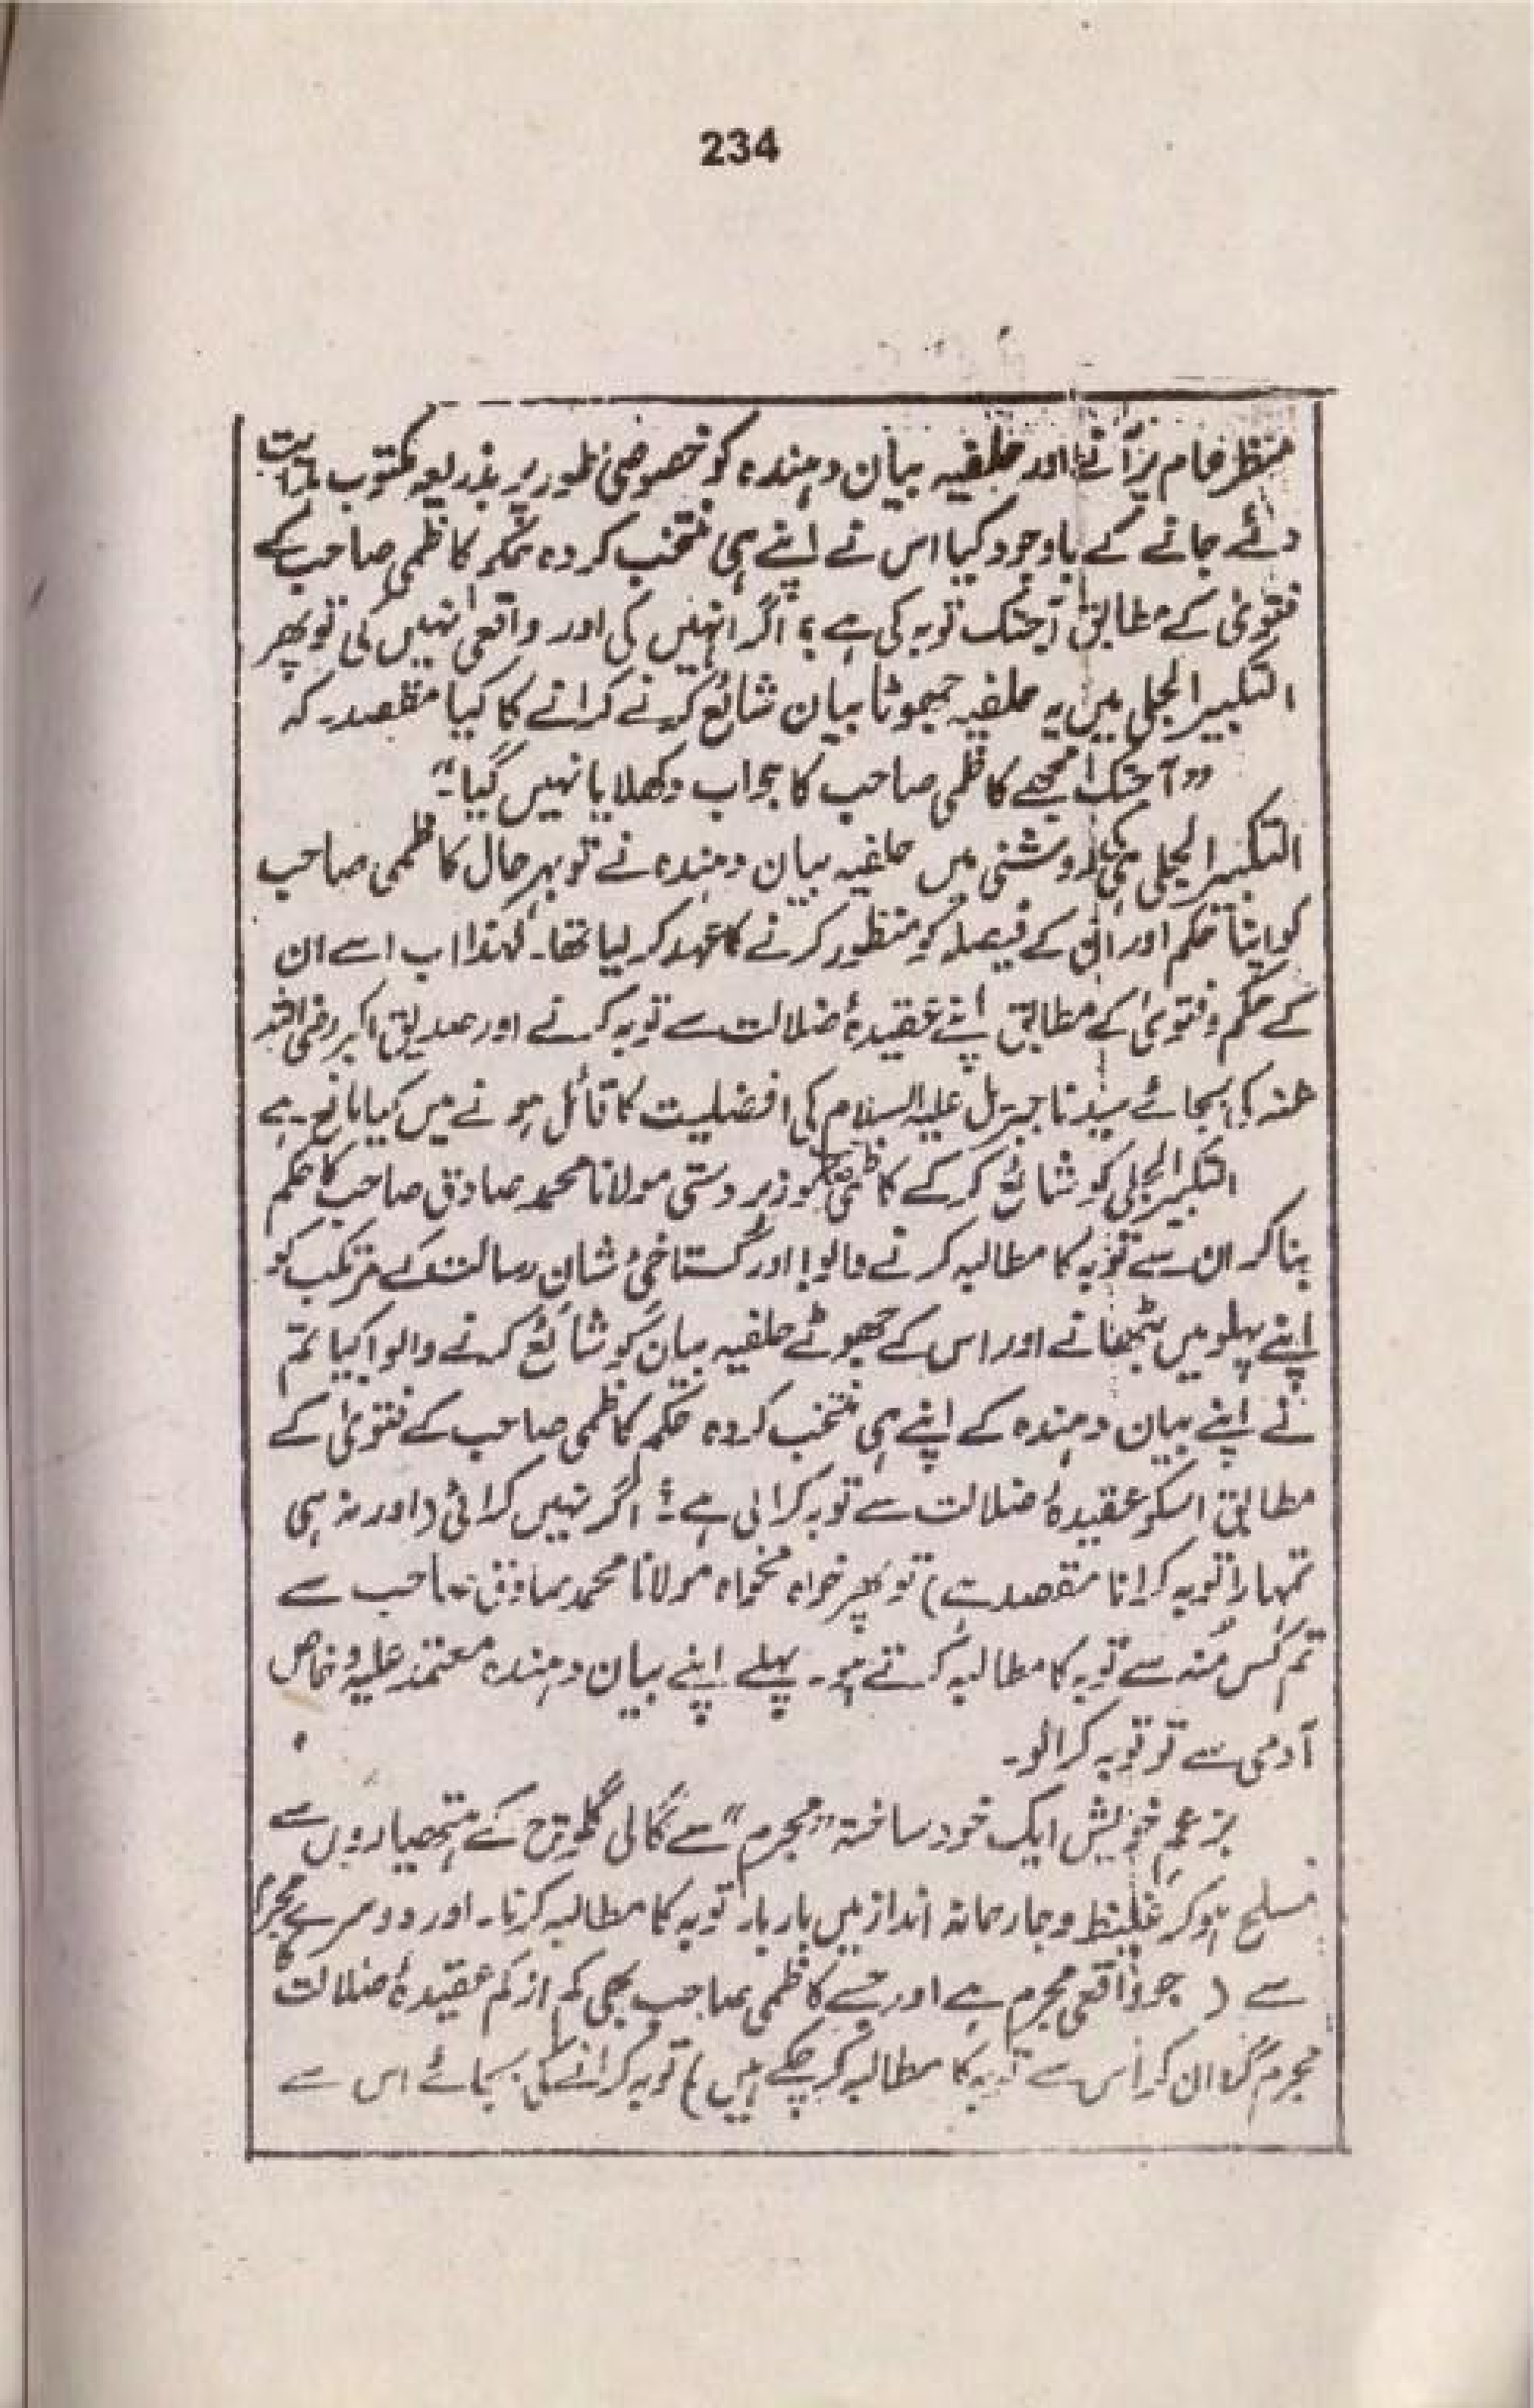 234
منظر عام پر آنے اور حلفیہ بیان دہندہ کو خصوصی طور پر بذریعہ مکتوب
دئے جانے کے باوجود کیا اس نے اپنے ہی منتخب کردہ حکم کاظمی صاحب کے
فتویٰ کے مطابق آجتک توبہ کی ہے ؟ اگر نہیں کی اور واقعی نہیں کی تو پھر
التکبیر الجلی میں یہ حلفیہ جھوٹا بیان شائع کرنے کرانے کا کیا مقصد کہ
” آجتک مجھے کاظمی صاحب کا جواب دکھلایا نہیں گیا “
التکبیر الجلی ہی کی روشنی میں حلفیہ بیان دہندہ نے تو بہر حال کاظمی صاحب
کو اپنا حکم اور ان کے فیصلہ کو منظور کرنے کا عہد کر لیا تھا۔ لہٰذا اب اسے ان
کے حکم و فتویٰ کے مطابق اپنے عقیدۂ ضلالت سے توبہ کرنے اور صدیق اکبر رضی اللہ
عنہ کی بجائے سیدنا جبریل علیہ السلام کی افضلیت کا قائل ہونے میں کیا مانع ہے
التکبیر الجلی کو شائع کر کے کاظمی صاحب کو زبردستی مولانا محمد صادق صاحب کا حکم
بنا کر ان سے توبہ کا مطالبہ کرنے والو! اور گستاخیٔ شان رسالت کے مرتکب کو
اپنے پہلو میں بٹھانے اور اس کے جھوٹے حلفیہ بیان کو شائع کرنے والو! کیا تم
نے اپنے بیان دہندہ کے اپنے ہی منتخب کردہ حکم کاظمی صاحب کے فتویٰ کے
مطابق اسکو عقیدۂ ضلالت سے توبہ کرالی ہے ؟ اگر نہیں کرائی (اور نہ ہی
تمہارا توبہ کرانا مقصد ہے) تو پھر خواہ مخواہ مولانا محمد صادق صاحب سے
تم کس منہ سے توبہ کا مطالبہ کرتے ہو۔ پہلے اپنے بیان دہندہ معتمد علیہ و خاص
آدمی سے تو توبہ کرالو۔
بزعم خویش ایک خود ساختہ ” مجرم “ سے گالی گلوچ کے ہتھیاروں سے
مسلح ہو کر غلیظ و جارحانہ انداز میں بار بار توبہ کا مطالبہ کرنا۔ اور دوسرے مجرم
سے ( جو واقعی مجرم ہے اور جسے کاظمی صاحب بھی کم از کم عقیدۂ ضلالت کا
مجرم گردان کر اس سے توبہ کا مطالبہ کر چکے ہیں ) توبہ کرانے کی بجائے اس سے